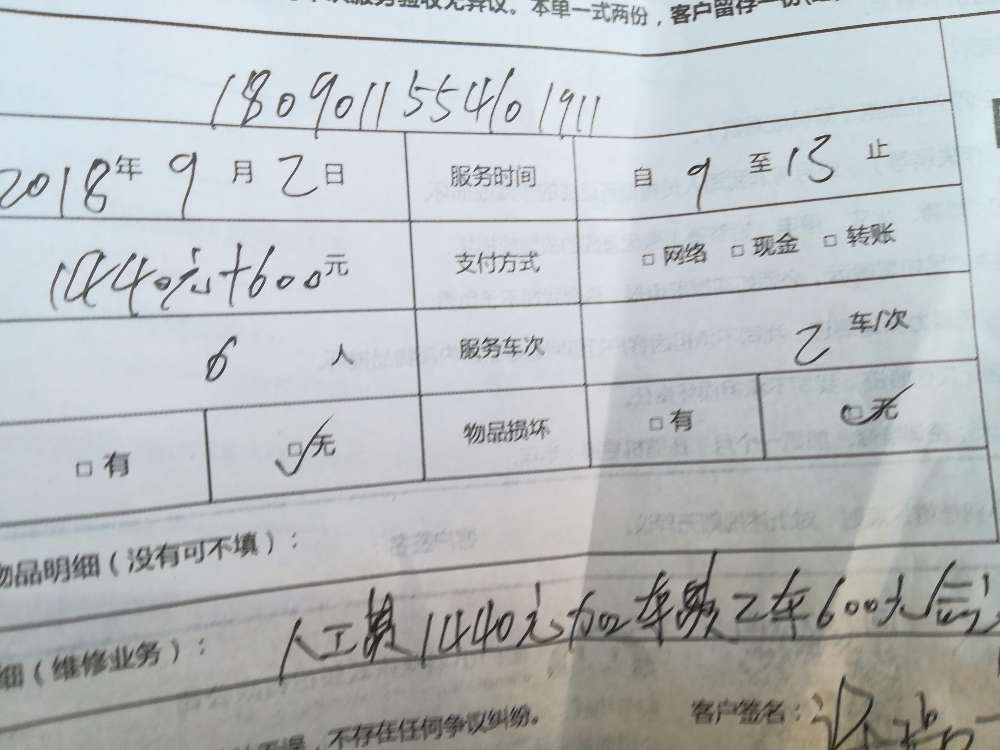 服务验收无异议。本单一式两份，客户留存一份
180901155401911
2018年9月2日 服务时间 自9至13止
1440元+600元 支付方式 □网络 □现金 □转账
6人 服务车次 2车/次
□有 □无 物品损坏 □有 □无
物品明细（没有可不填）：
细（维修业务）： 人工费1440元 加2车费2车600元
不存在任何争议纠纷。 客户签名：